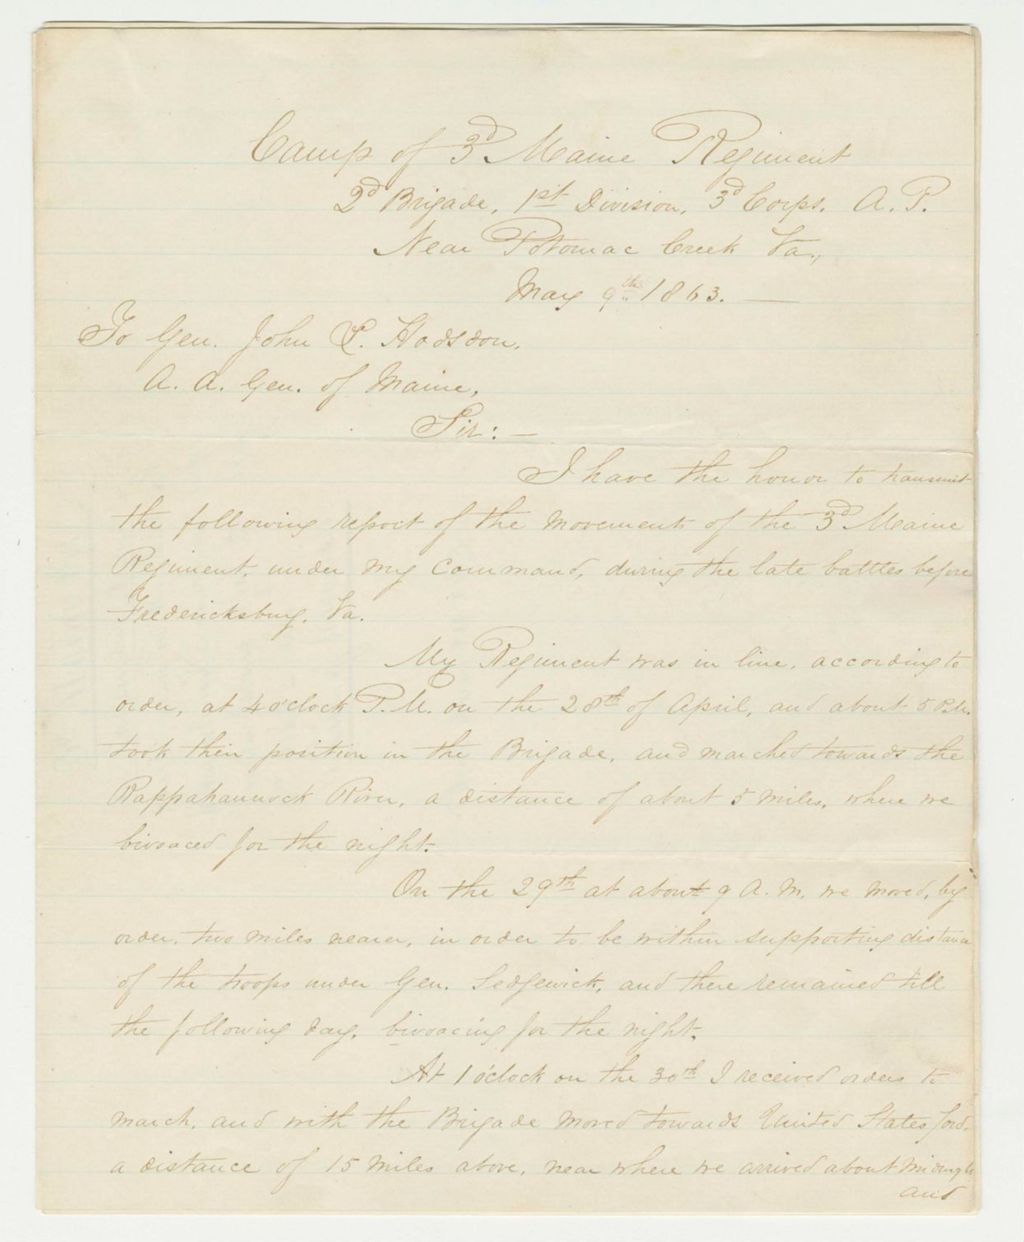 Camp of 3d Maine Regiment
2d Brigade, 1st Division, 3d Corps, A. P.
Near Potomac Creek Va.,
May 9th 1863. —
To Gen. John L. Hodsdon,
A. A. Gen. of Maine,
Sir: —
I have the honor to transmit
the following report of the movements of the 3d Maine
Regiment, under my command, during the late battles before
Fredericksburg, Va.
My Regiment was in line, according to
order, at 4 o'clock P.M. on the 28th of April, and about 5 P.M.
took their position in the Brigade, and marched towards the
Rappahannock River, a distance of about 5 miles, where we
bivoaced for the night.
On the 29th at about 9 A. M. we moved, by
order, two miles nearer, in order to be within supporting distance
of the troops under Gen. Sedgewick, and there remained till
the following day, bivoacing for the night.
At 1 o'clock on the 30th I received orders to
march, and with the Brigade moved towards United States ford,
a distance of 15 miles above, near where we arrived about midnight
and